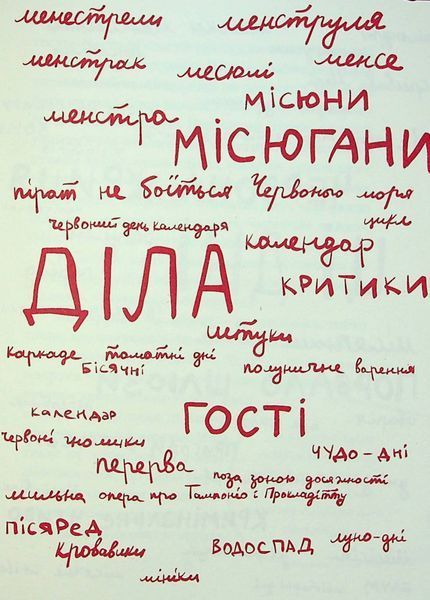 менестрели менструля
менстрак месюлі менсе
місюни
менстра
МІСЮГАНИ
пірат не боїться Червоного моря
червоний день календаря цикл
календар
ДІЛА
КРИТИКИ
штуки
каркаде томатні дні
бісячні полуничне варення
календар
ГОСТІ
червоні гномики
чудо-дні
перерва
поза зоною досяжності
мильна опера про Тампоніо і Прокладітту
пісяРЕД
кровавики водоспад луно-дні
мініки